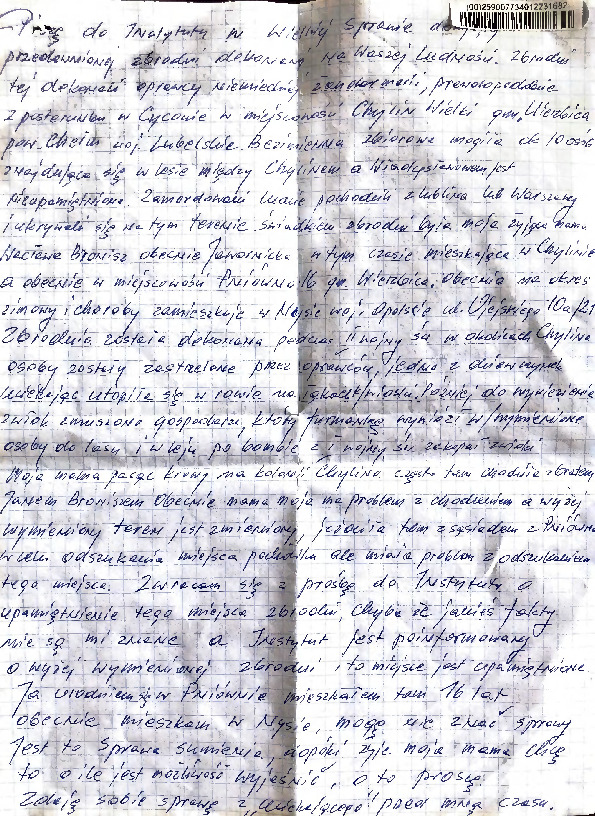 (00)259007734012231687
Piszę do Instytutu w Wielkiej Sprawie
przedawnionej zbrodni dokonanej na Waszej Ludności. Zbrodni
tej dokonali oprawcy niemieckiej żandarmerii, prawdopodobnie
z posterunku w Cycowie w miejscowości Chylin Wielki gm. Wierzbica
pow. Chełm woj. Lubelskie. Bezimienna zbiorowa mogiła ok 10 osób
znajdująca się w lesie między Chylinem a Władysławowem jest
nieupamiętniona. Zamordowani ludzie pochodzili z Lublina lub Warszawy
i ukrywali się na tym terenie. Świadkiem zbrodni była moja żyjąca mama
Wacława Bronisz obecnie Jawornicka w tym czasie mieszkająca w Chylinie
a obecnie w miejscowości Pniówno 16 gm. Wierzbica. Obecnie na okres
zimowy i choroby zamieszkuje w Nysie woj. Opolskie ul. Ujejskiego 10a/21
Zbrodnia została dokonana podczas II wojny św w okolicach Chylina
osoby zostały zastrzelone przez oprawców, jedna z dziewczynek
uciekając utopiła się w rowie na łąkach Później do wywiezienia
zwłok zmuszono gospodarza, który furmanką wywiózł w/wymienione
osoby do lasu i w leju po bombie z I wojny św zakopał zwłoki
Moja mama pasąc krowy na kolonii Chylina często tam chodziła z bratem
Jankiem Broniszem Obecnie mama moja ma problem z chodzeniem a wyżej
wymieniony teren jest zmieniony, jeździła tam z sąsiadem z Pniówna
w celu odszukania miejsca pochówku ale miała problem z odszukaniem
tego miejsca. Zwracam się z prośbą do Instytutu o
upamiętnienie tego miejsca zbrodni, chyba że jakieś fakty
nie są mi znane a Instytut jest poinformowany
o wyżej wymienionej zbrodni i to miejsce jest upamiętnione.
Ja urodziłem się w Pniównie mieszkałem tam 16 lat
obecnie mieszkam w Nysie, mogę nie znać sprawy
Jest to sprawa sumienia, dopóki żyje moja mama chcę
to o ile jest możliwość wyjaśnić, o to proszę.
Zdaję sobie sprawę z "uciekającego" przed mną czasu.